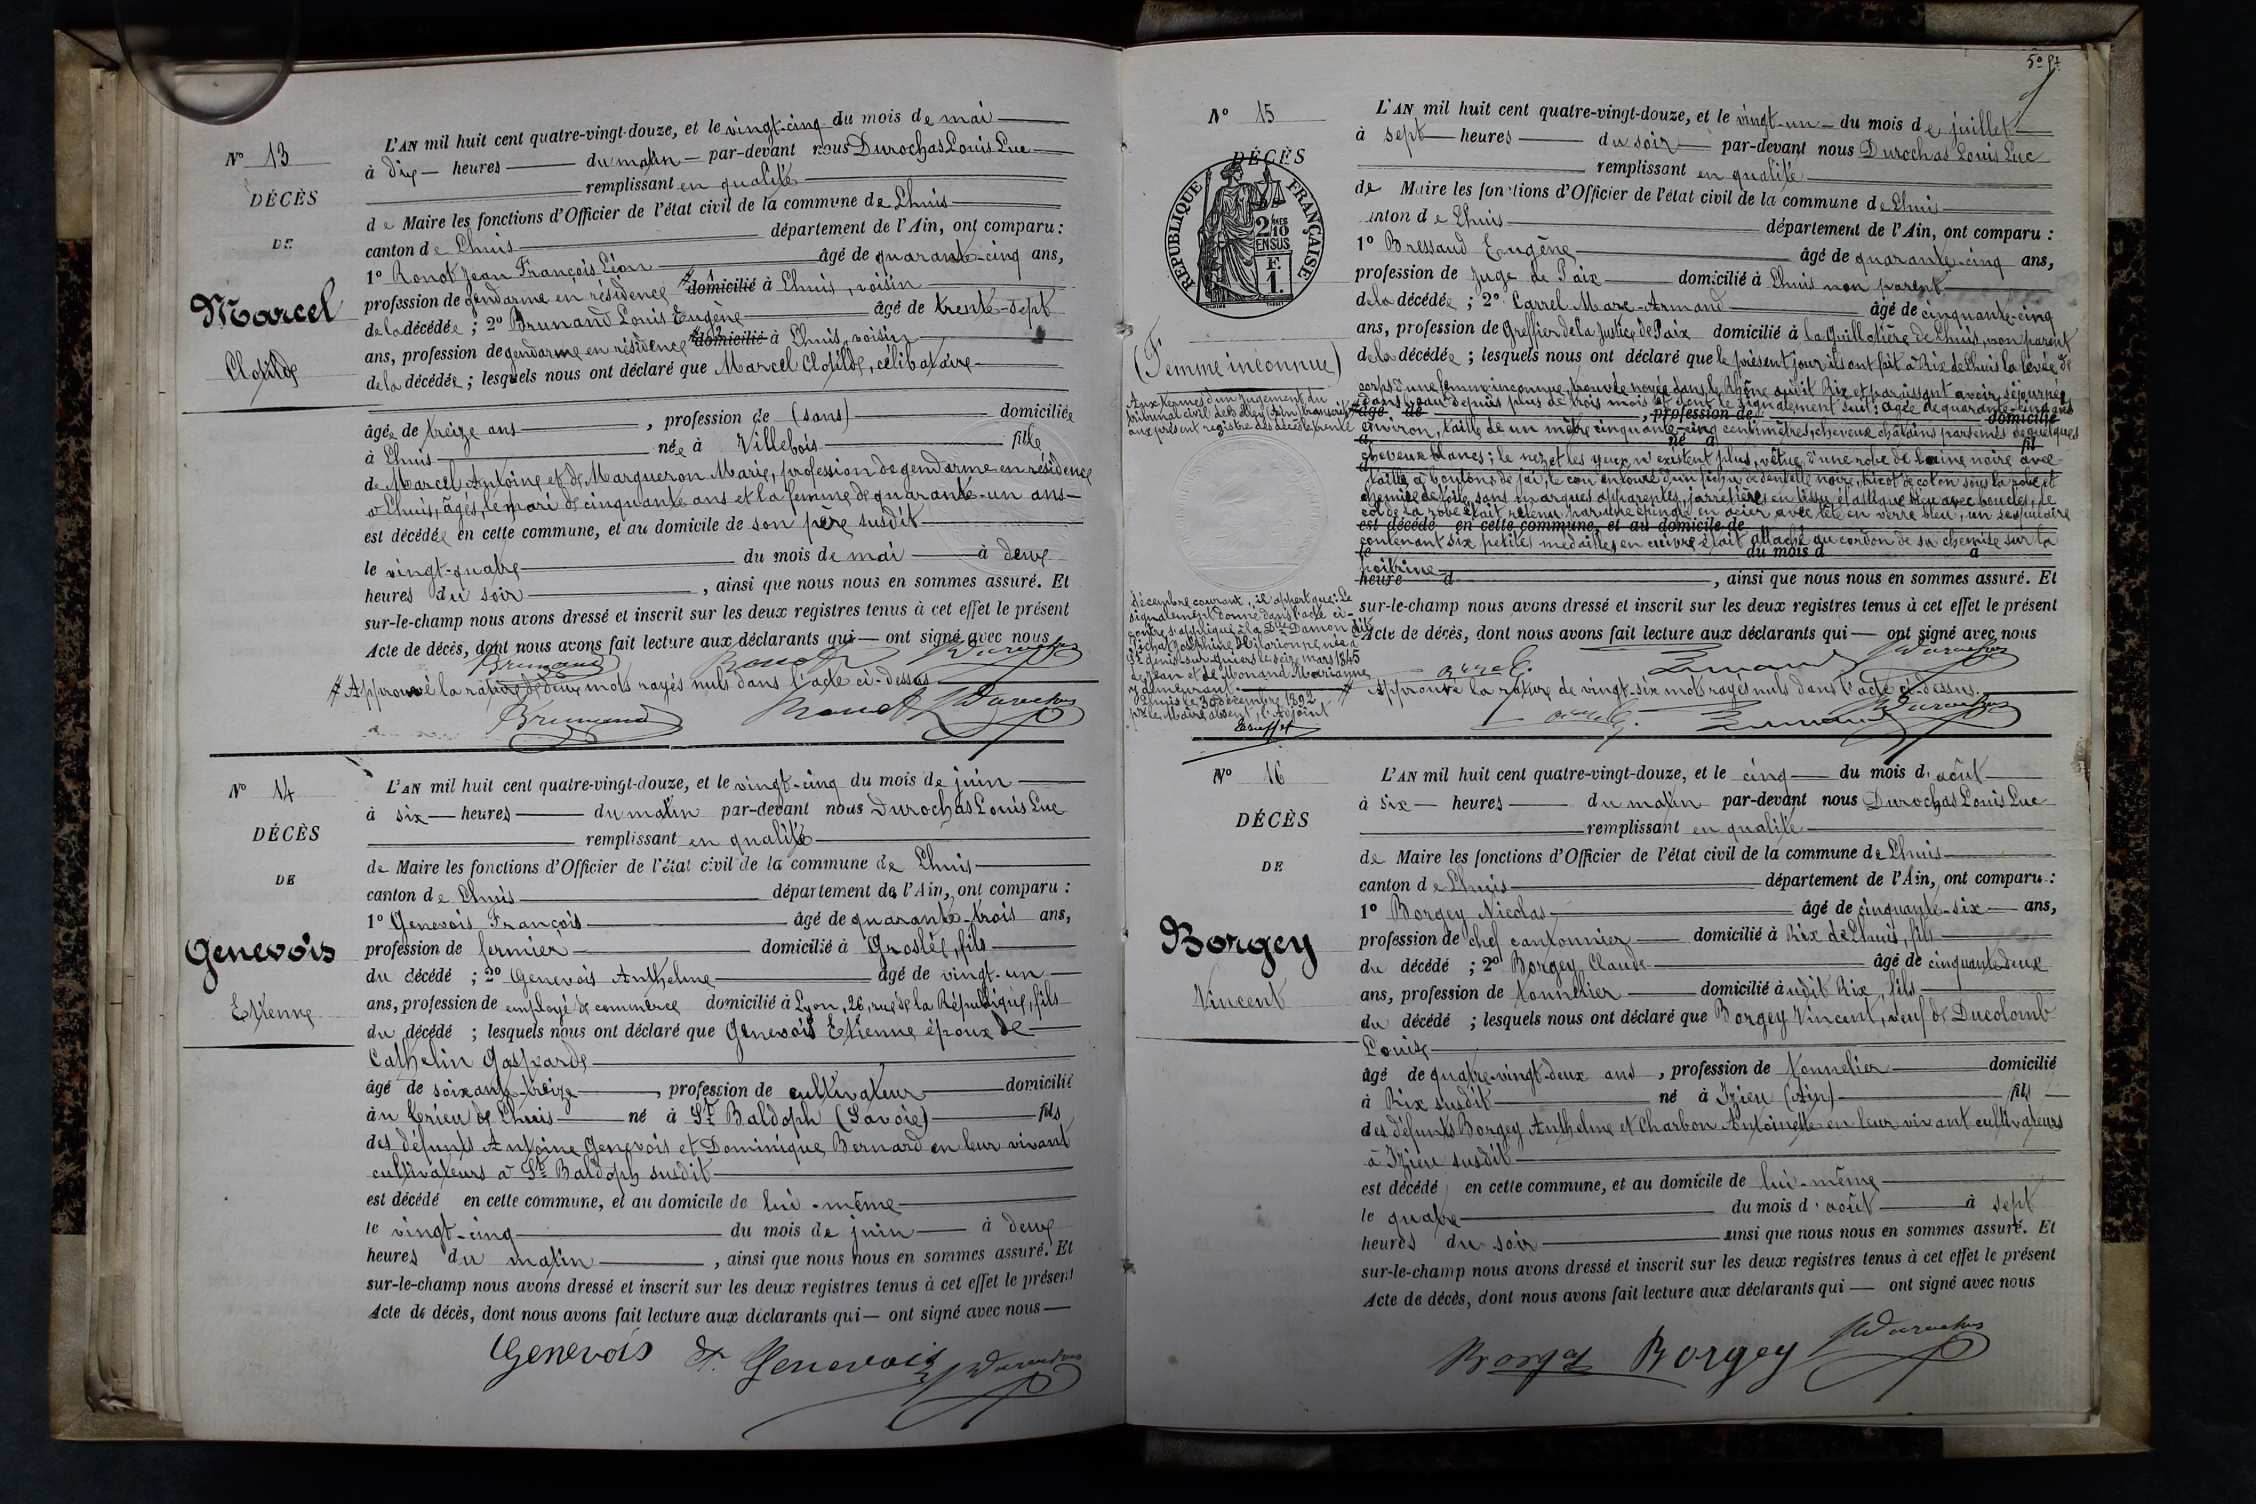 N° 13
DÉCÈS
DE
Marcel
Clotilde
L'AN mil huit cent quatre-vingt-douze, et le vingt-cinq du mois de mai
à dix heures du matin par-devant nous Durochas Louis Luc
remplissant en qualité
de Maire les fonctions d'Officier de l'état civil de la commune de Lhuis
canton de Lhuis département de l'Ain, ont comparu :
1° Ronot Jean François Léon âgé de quarante-cinq ans,
profession de gendarme en résidence domicilié à Lhuis, voisin
de la décédée ; 2° Brunand Louis Eugène âgé de trente-sept
ans, profession de gendarme en résidence domicilié à Lhuis, voisin
de la décédée ; lesquels nous ont déclaré que Marcel Clotilde, célibataire
âgée de treize ans , profession de (sans) domiciliée
à Lhuis née à Villebois fille
de Marcel Antoine et de Margueron Marie, profession de gendarme en résidence
à Lhuis, âgés, le mari de cinquante ans et la femme de quarante-un ans
est décédée en cette commune, et au domicile de son père susdit
le vingt-quatre du mois de mai à deux
heures du soir , ainsi que nous nous en sommes assuré. Et
sur-le-champ nous avons dressé et inscrit sur les deux registres tenus à cet effet le présent
Acte de décès, dont nous avons fait lecture aux déclarants qui ont signé avec nous
Brunand Ronot Durochas
# Approuvé la rature de deux mots rayés nuls dans l'acte ci-dessus
Brunand Ronot Durochas
N° 14
DÉCÈS
DE
Genevois
Etienne
L'AN mil huit cent quatre-vingt-douze, et le vingt-cinq du mois de juin
à six heures du matin par-devant nous Durochas Louis Luc
remplissant en qualité
de Maire les fonctions d'Officier de l'état civil de la commune de Lhuis
canton de Lhuis département de l'Ain, ont comparu :
1° Genevois François âgé de quarante-trois ans,
profession de fermier domicilié à Groslée, fils
du décédé ; 2° Genevois Anthelme âgé de vingt-un
ans, profession de employé de commerce domicilié à Lyon, 26, rue de la République, fils
du décédé ; lesquels nous ont déclaré que Genevois Etienne époux de
Cathelin Gasparde
âgé de soixante-treize , profession de cultivateur domicilié
au Crieu de Lhuis né à St Baldoph (Savoie) fils
des défunts Antoine Genevois et Dominique Bernard en leur vivant
cultivateurs à St Baldoph susdit
est décédé en cette commune, et au domicile de lui-même
le vingt-cinq du mois de juin à deux
heures du matin , ainsi que nous nous en sommes assuré. Et
sur-le-champ nous avons dressé et inscrit sur les deux registres tenus à cet effet le présent
Acte de décès, dont nous avons fait lecture aux déclarants qui ont signé avec nous
Genevois F. Genevois Durochas
N° 15
DÉCÈS
RÉPUBLIQUE FRANÇAISE
2/10 EN SUS
F.
1.
(Femme inconnue)
Aux termes d'un jugement du
tribunal civil de Belley transcrit
aux présent registre des décès le trente
décembre courant, il appert que : Le
signalement donné dans l'acte ci-
contre s'applique à la Dlle Damon dite
Pichat Joséphine Hilarionne, née à
St Genis-sur-Guiers le seize mars 1845
de Jean et de Monand Marianne
y demeurant
Lhuis le 30 décembre 1892
pr le Maire absent, l'Adjoint
L'AN mil huit cent quatre-vingt-douze, et le vingt-un du mois de juillet
à sept heures du soir par-devant nous Durochas Louis Luc
remplissant en qualité
de Maire les fonctions d'Officier de l'état civil de la commune de Lhuis
canton de Lhuis département de l'Ain, ont comparu :
1° Bressand Eugène âgé de quarante-cinq ans,
profession de Juge de Paix domicilié à Lhuis non parent
de la décédée ; 2° Carrel Marc-Armand âgé de cinquante-cinq
ans, profession de Greffier de la Justice de Paix domicilié à la Guillotière de Lhuis, non parent
de la décédée ; lesquels nous ont déclaré que le présent jour ils ont fait à Rix de Lhuis la levée du
corps d'une femme inconnue trouvée noyée dans le Rhône audit Rix et paraissant avoir séjourné
dans l'eau depuis plus de trois mois et dont le signalement suit : âgée de quarante-cinq ans
âgé de , profession de domicilié
environ, taille de un mètre cinquante-cinq centimètres, cheveux châtains parsemés de quelques
à né à fil
cheveux blancs ; le nez et les yeux n'existent plus, vêtue d'une robe de laine noire avec
taille à boutons de jai, le cou entouré d'un fichu de dentelle noire, tricot de coton sous la robe et
chemise de toile sans marques apparentes, jarretières en tissu élastique bleu avec boucles, le
col de la robe était retenu par une épingle en acier avec tête en verre bleu, un scapulaire
est décédé en cette commune, et au domicile de
contenant six petites médailles en cuivre était attaché au cordon de sa chemise sur la
le du mois d à
poitrine
heure d , ainsi que nous nous en sommes assuré. Et
sur-le-champ nous avons dressé et inscrit sur les deux registres tenus à cet effet le présent
Acte de décès, dont nous avons fait lecture aux déclarants qui ont signé avec nous
Durochas
# Approuvé la rature de vingt-six mots rayés nuls dans l'acte ci-dessus.
Durochas
N° 16
DÉCÈS
DE
Borgey
Vincent
L'AN mil huit cent quatre-vingt-douze, et le cinq du mois d'août
à six heures du matin par-devant nous Durochas Louis Luc
remplissant en qualité
de Maire les fonctions d'Officier de l'état civil de la commune de Lhuis
canton de Lhuis département de l'Ain, ont comparu :
1° Borgey Nicolas âgé de cinquante-six ans,
profession de chef cantonnier domicilié à Rix de Lhuis, fils
du décédé ; 2° Borgey Claude âgé de cinquante-deux
ans, profession de tonnelier domicilié audit Rix, fils
du décédé ; lesquels nous ont déclaré que Borgey Vincent, veuf de Ducolomb
Louise
âgé de quatre-vingt-deux ans , profession de tonnelier domicilié
à Rix susdit né à Izieu (Ain) fils
des défunts Borgey Anthelme et Charbon Antoinette en leur vivant cultivateurs
à Izieu susdit
est décédé en cette commune, et au domicile de lui-même
le quatre du mois d'août à sept
heures du soir ainsi que nous nous en sommes assuré. Et
sur-le-champ nous avons dressé et inscrit sur les deux registres tenus à cet effet le présent
Acte de décès, dont nous avons fait lecture aux déclarants qui ont signé avec nous
Borgey Borgey Durochas